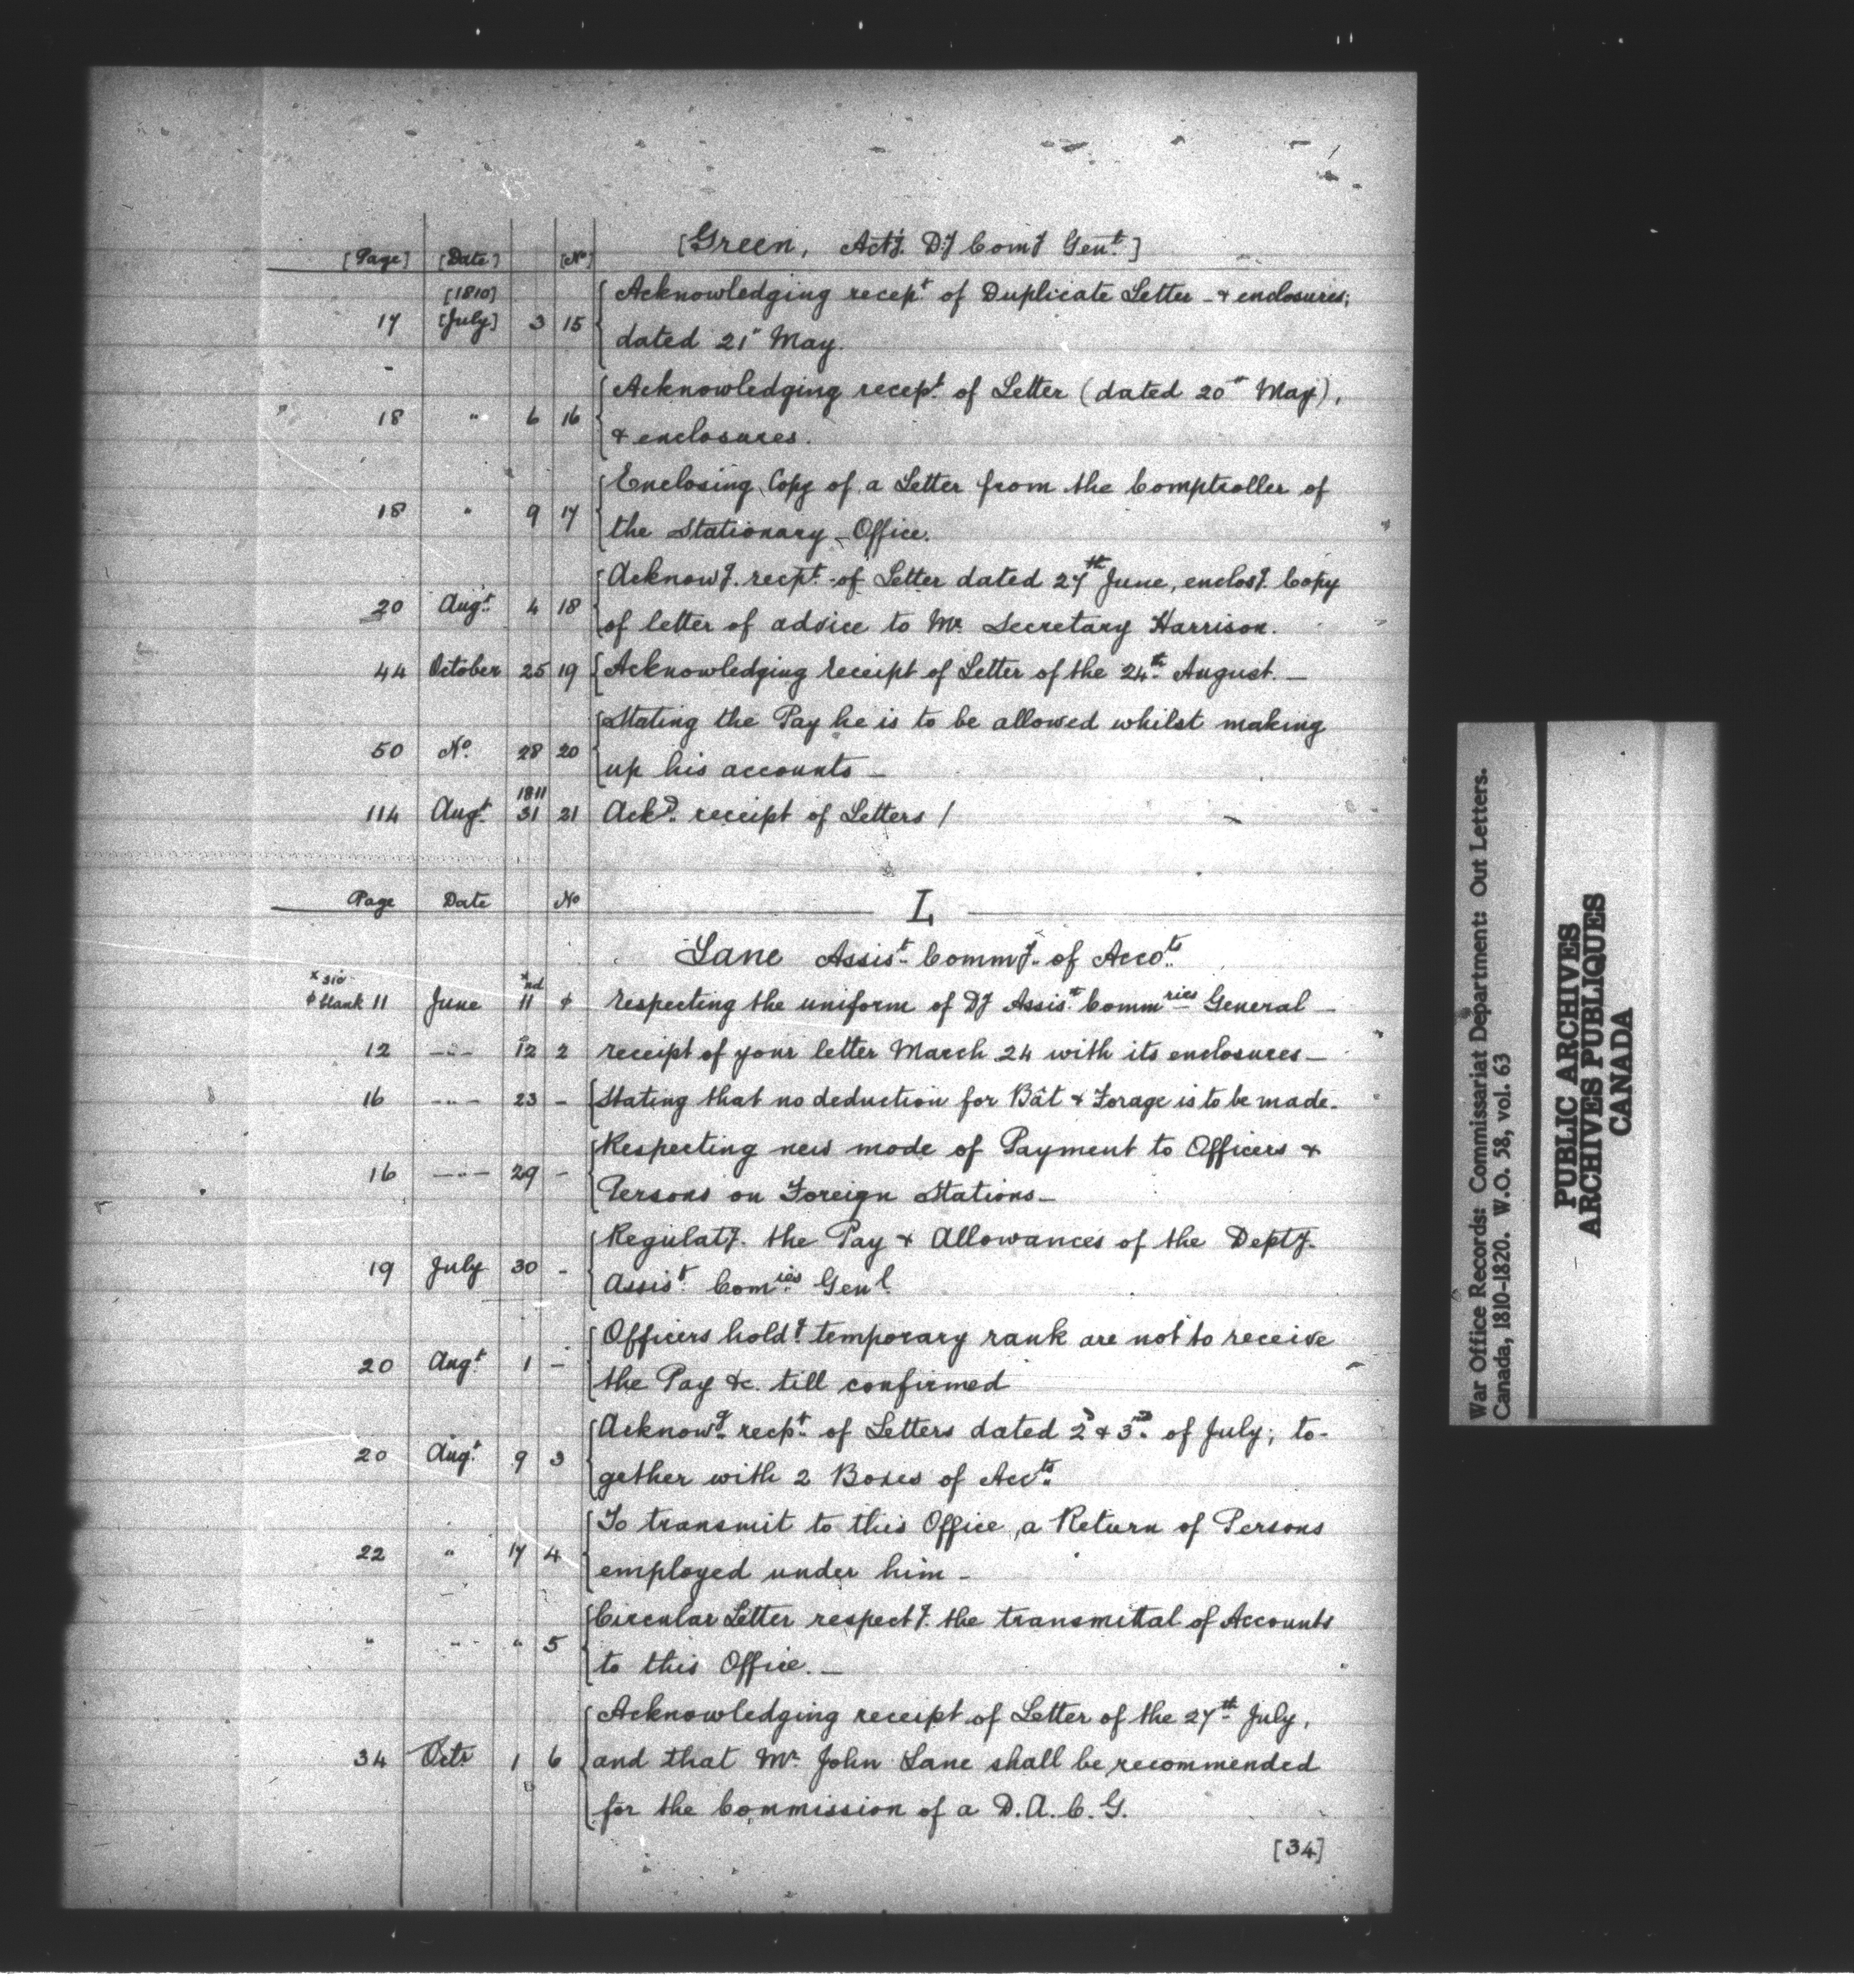 [Green, Act.g D.y Com.y Gen.l]
[Page] [Date] [No]
[1810] Acknowledging recep.t of Duplicate Letter - & enclosures;
17 [July] 3 15 dated 21st May.
Acknowledging recep.t of Letter (dated 20th May),
18 " 6 16 & enclosures.
Enclosing Copy of a Letter from the Comptroller of
18 " 9 17 the Stationary Office.
Acknow.g recpt of Letter dated 27th June, enclos.g Copy
20 Aug.t 4 18 of letter of advice to Mr. Secretary Harrison.
44 October 25 19 Acknowledging receipt of Letter of the 24th August. -
Stating the Pay he is to be allowed whilst making
50 No. 28 20 up his accounts -
1811
114 Aug.t 31 21 Ack.g receipt of Letters /
Page Date No L
Lane Assis.t Comm.y of Acco.ts
x sic
ϕ blank 11 June 11 x nd ϕ respecting the uniform of D.y Assis.t Comm.ries General -
12 -"- 12 2 receipt of your letter March 24 with its enclosures -
16 -"- 23 - Stating that no deduction for Bât & Forage is to be made.
Respecting new mode of Payment to Officers &
16 -"- 29 - Persons on Foreign Stations -
Regulat.g the Pay & Allowances of the Dept.y
19 July 30 - Assis.t Com.ies Gen.l
Officers hold.g temporary rank are not to receive
20 Aug.t 1 - the Pay &c. till confirmed
Acknow.g recp.t of Letters dated 2d & 3d of July; to-
20 Aug.t 9 3 gether with 2 Boxes of Acc.ts
To transmit to this Office, a Return of Persons
22 " 17 4 employed under him -
Circular Letter respect.g the transmittal of Accounts
" " " 5 to this Office. -
Acknowledging receipt of Letter of the 27th July,
34 Octr 1 6 and that Mr. John Lane shall be recommended
for the Commission of a D.A.C.G.
[34]
War Office Records: Commissariat Department: Out Letters.
Canada, 1810-1820. W.O. 58, vol. 63
PUBLIC ARCHIVES
ARCHIVES PUBLIQUES
CANADA